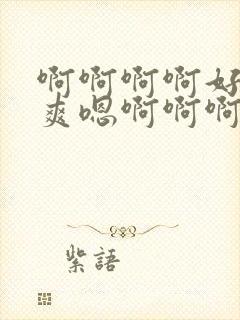 啊啊啊啊好
爽嗯啊啊啊
紫語